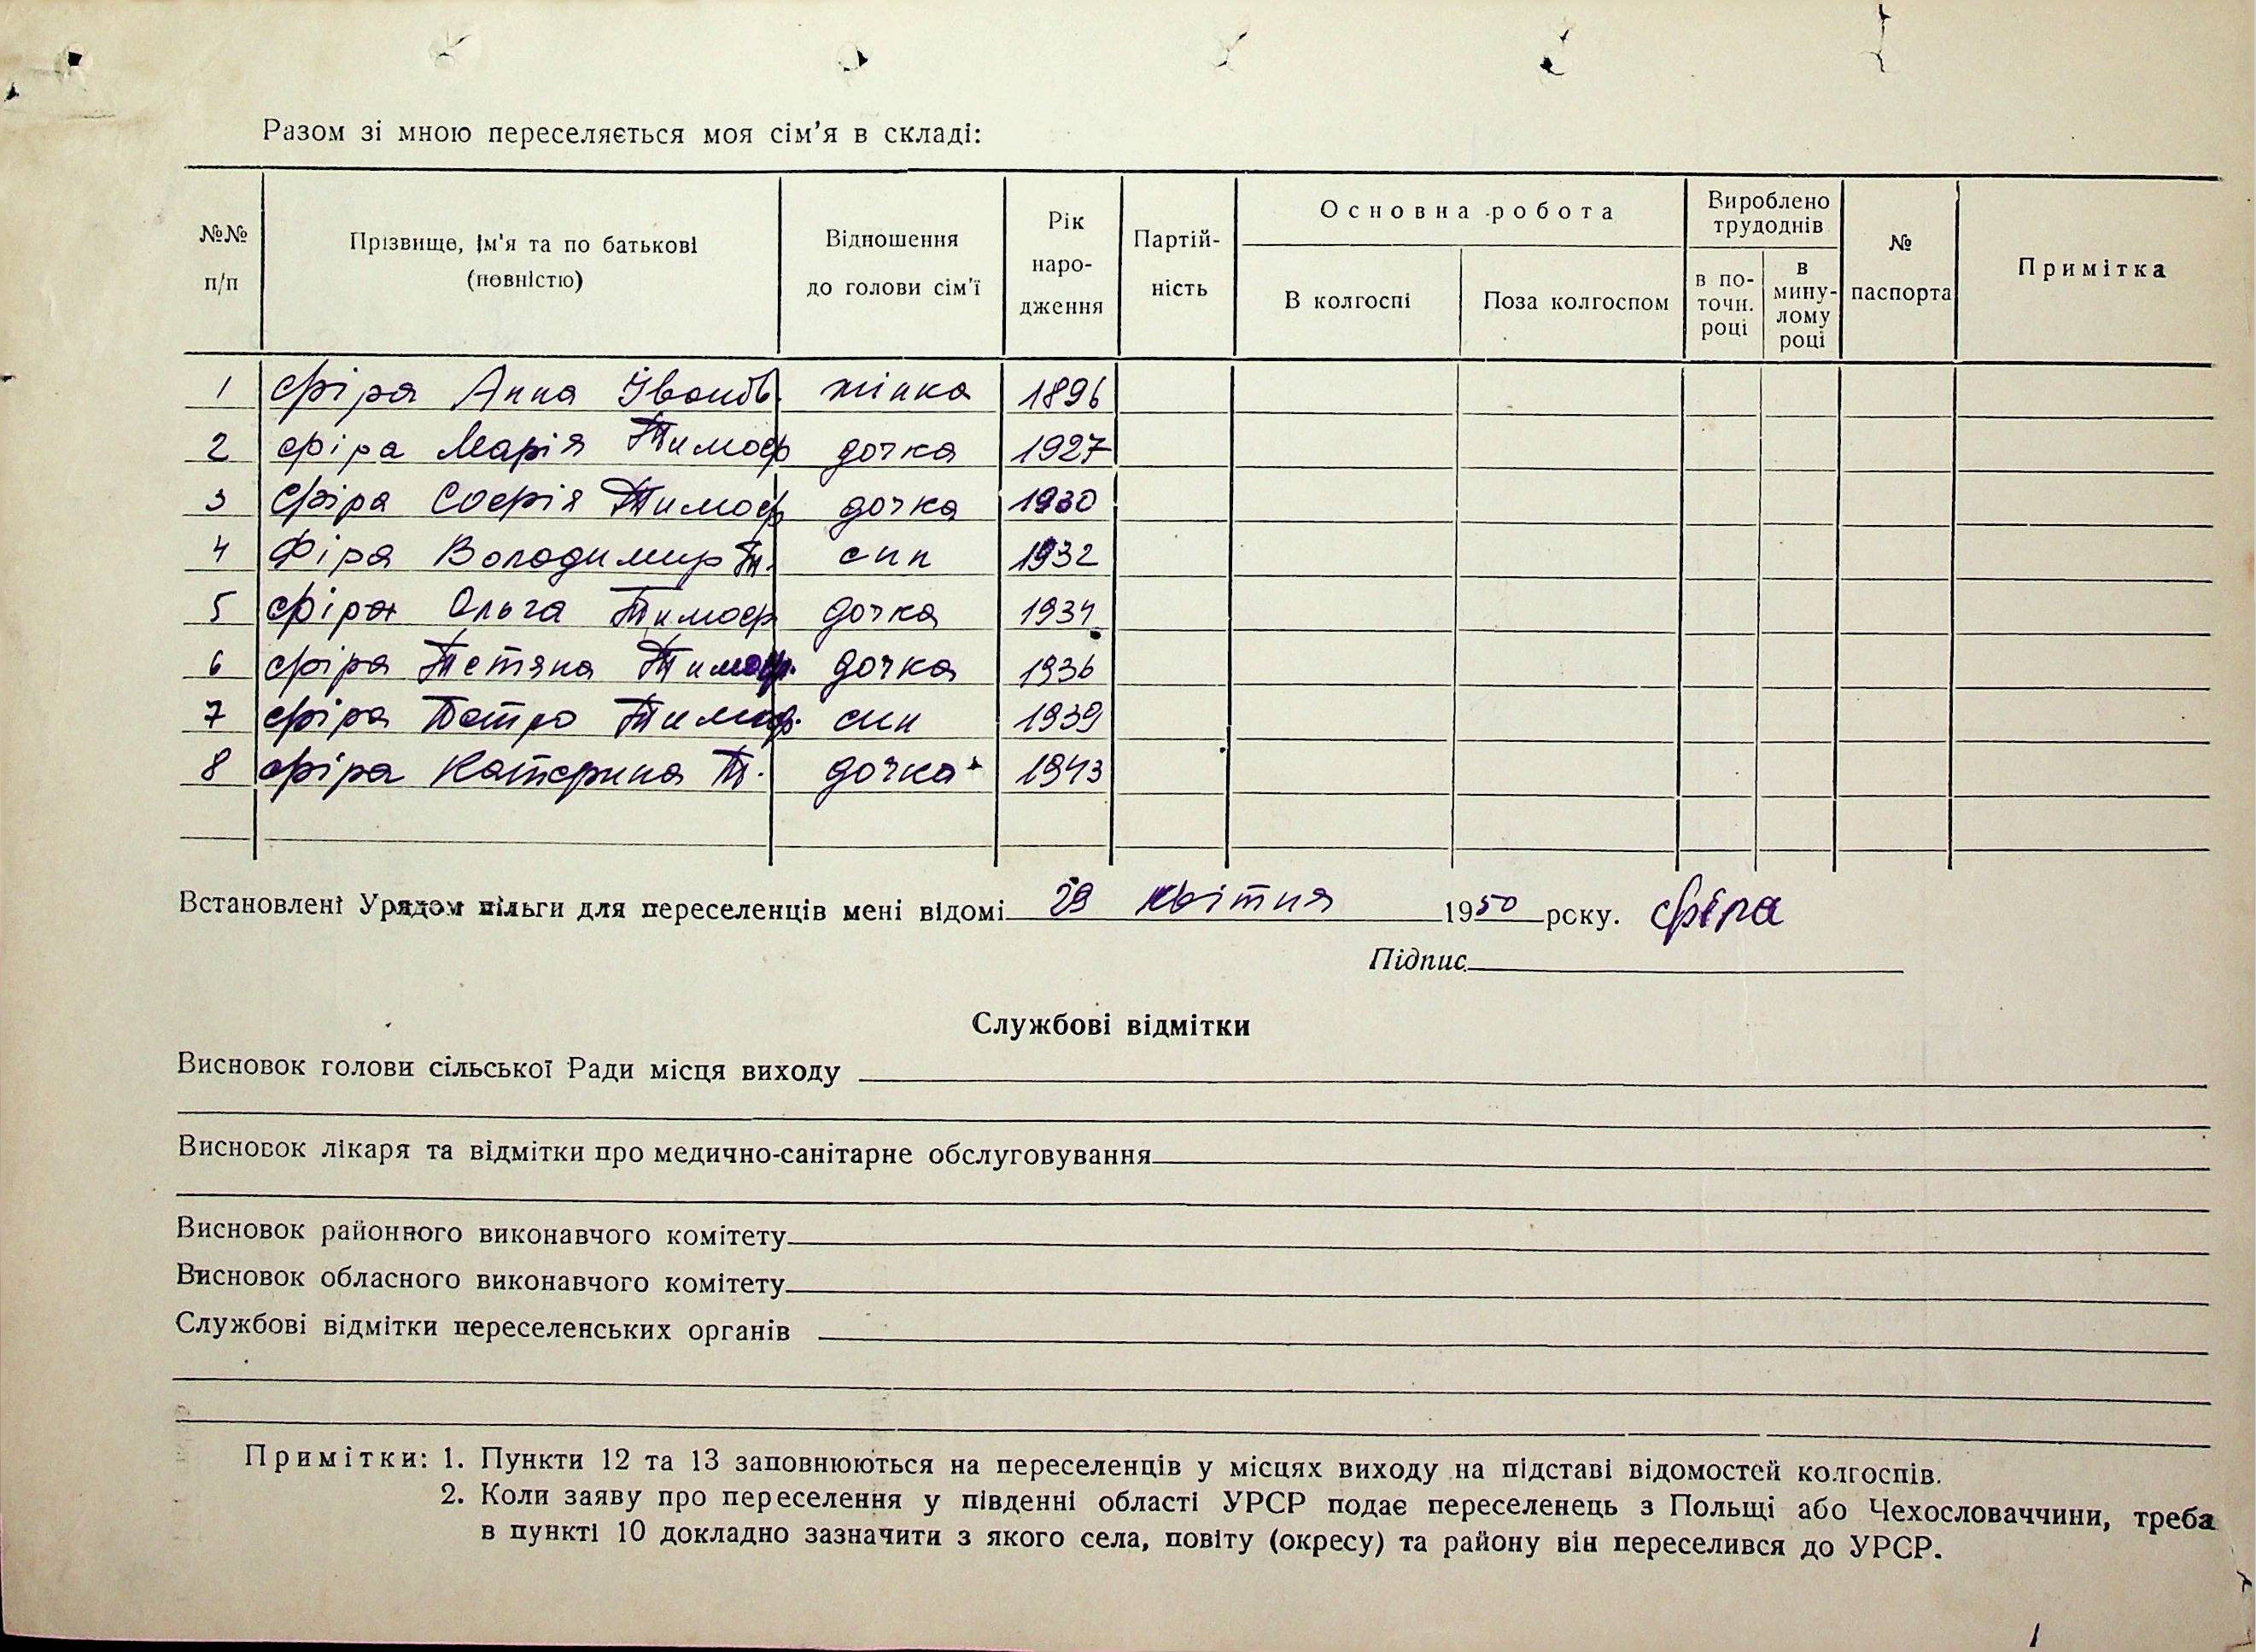 Разом зі мною переселяється моя сім'я в складі:
№№ п/п | Прізвище, ім'я та по батькові (повністю) | Відношення до голови сім'ї | Рік народження | Партійність | Основна робота | Вироблено трудоднів | № паспорта | Примітка
В колгоспі | Поза колгоспом | в поточн. році | в минулому році
1 Фіра Анна Іванів. жінка 1896
2 Фіра Марія Тимоф дочка 1927
3 Фіра Софія Тимоф дочка 1930
4 Фіра Володимир Т. син 1932
5 Фіра Ольга Тимоф дочка 1934
6 Фіра Тетяна Тимоф. дочка 1936
7 Фіра Петро Тимоф. син 1939
8 Фіра Катерина Т. дочка 1943
Встановлені Урядом пільги для переселенців мені відомі 29 квітня 1950 року. Фіра
Підпис
Службові відмітки
Висновок голови сільської Ради місця виходу
Висновок лікаря та відмітки про медично-санітарне обслуговування
Висновок районного виконавчого комітету
Висновок обласного виконавчого комітету
Службові відмітки переселенських органів
Примітки: 1. Пункти 12 та 13 заповнюються на переселенців у місцях виходу на підставі відомостей колгоспів.
2. Коли заяву про переселення у південні області УРСР подає переселенець з Польщі або Чехословаччини, треба
в пункті 10 докладно зазначити з якого села, повіту (окресу) та району він переселився до УРСР.